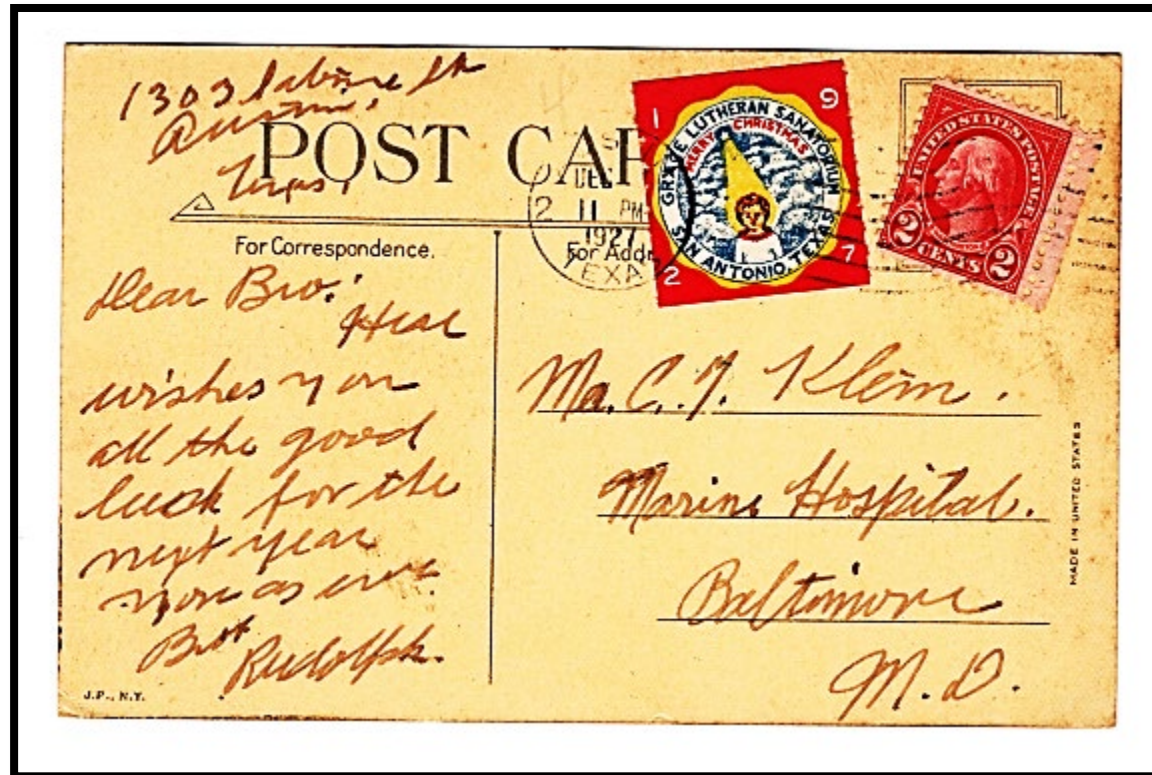 1303 Sabine St
Austin,
Texas,
POST CAR
DEC
2 11 PM
1927
TEXA
1 9 2 7
GRACE LUTHERAN SANATORIUM
MERRY CHRISTMAS
SAN ANTONIO, TEXAS
UNITED STATES POSTAGE
2 CENTS 2
For Correspondence.
For Addr
Dear Bro.:
Hear
wishes you
all the good
luck for the
next year
now as ever
Brot Rudolph.
J.P., N.Y.
Mr. C. J. Klem.
Marine Hospital.
Baltimore
M.D.
MADE IN UNITED STATES